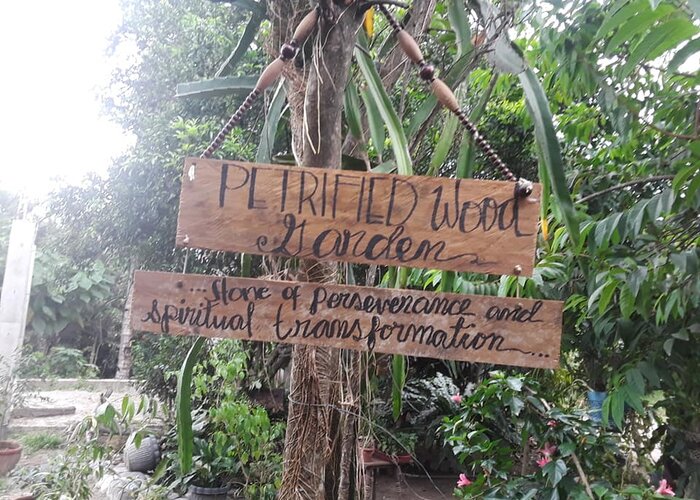 PETRIFIED Wood
Garden
...Stone of perseverance and
spiritual transformation...